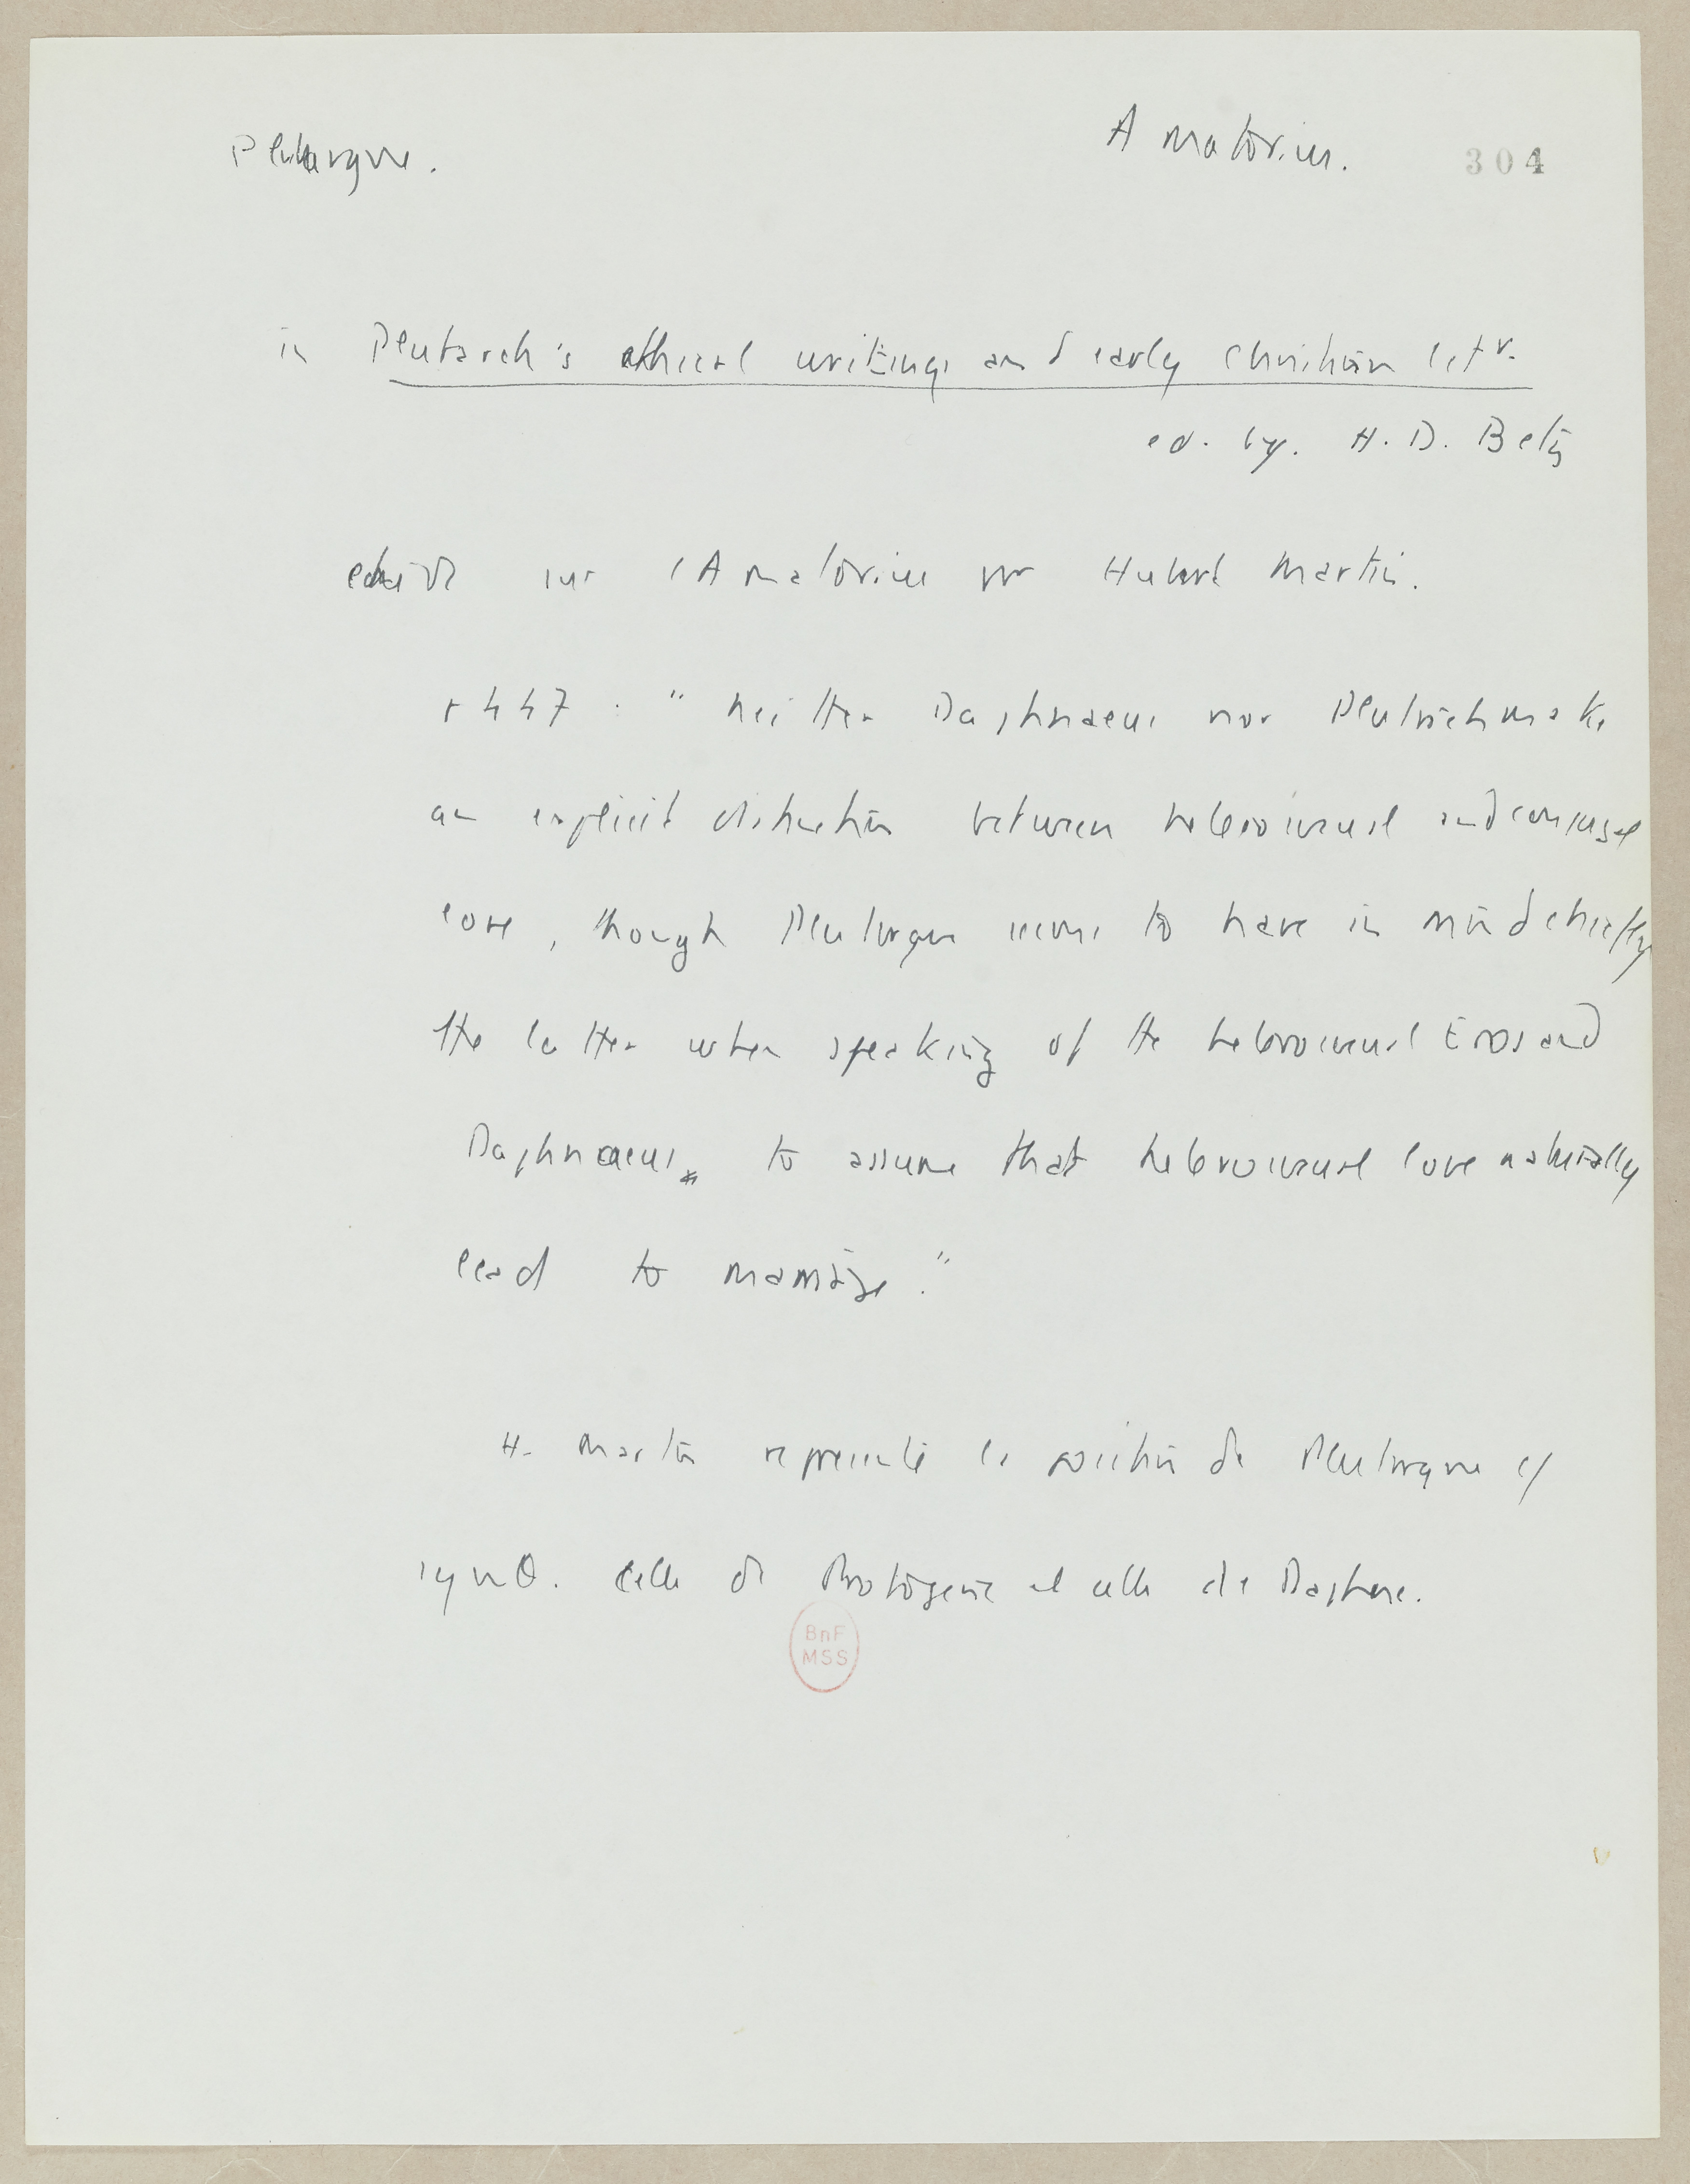 Plutarque. Amatorius. 304
in Plutarch's ethical writings and early Christian litr.
ed. by. H. D. Betz
étude sur l'Amatorius par Hubert Martin.
p 447 : " neither Daphnaeus nor Plutarch make
an explicit distinction between heterosexual and conjugal
love, though Plutarque seems to have in mind chiefly
the latter when speaking of the heterosexual Eros and
Daphnaeus * to assume that heterosexual love naturally
lead to marriage."
H. Martin représente la position de Plutarque c/
synth. celle de Protogène et celle de Daphné.
BnF
MSS